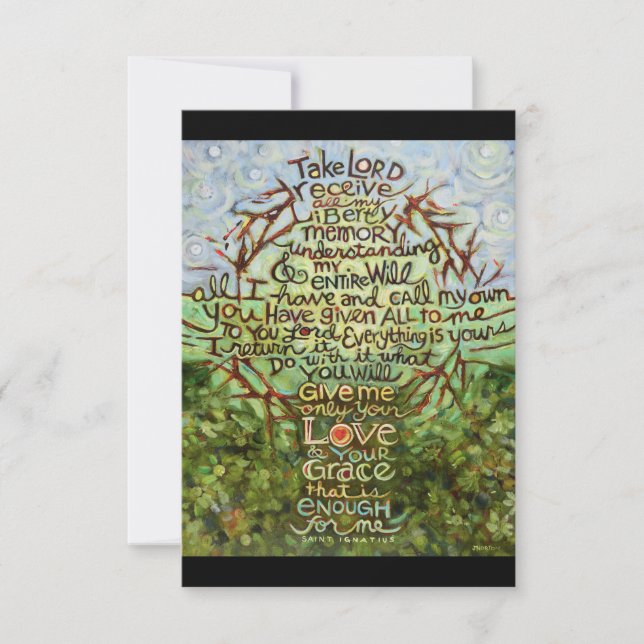 Take LORD
receive
all my
liberty
memory
understanding
& my
ENTIRE Will
all I have and CALL my own
you Have given ALL to me
To You Lord Everything is yours
I return it
Do with it what
YOU WILL
GIVE ME
only your
LOVE
& YOUR
GRACE
that is
ENOUGH
for me
SAINT IGNATIUS
J NORTON